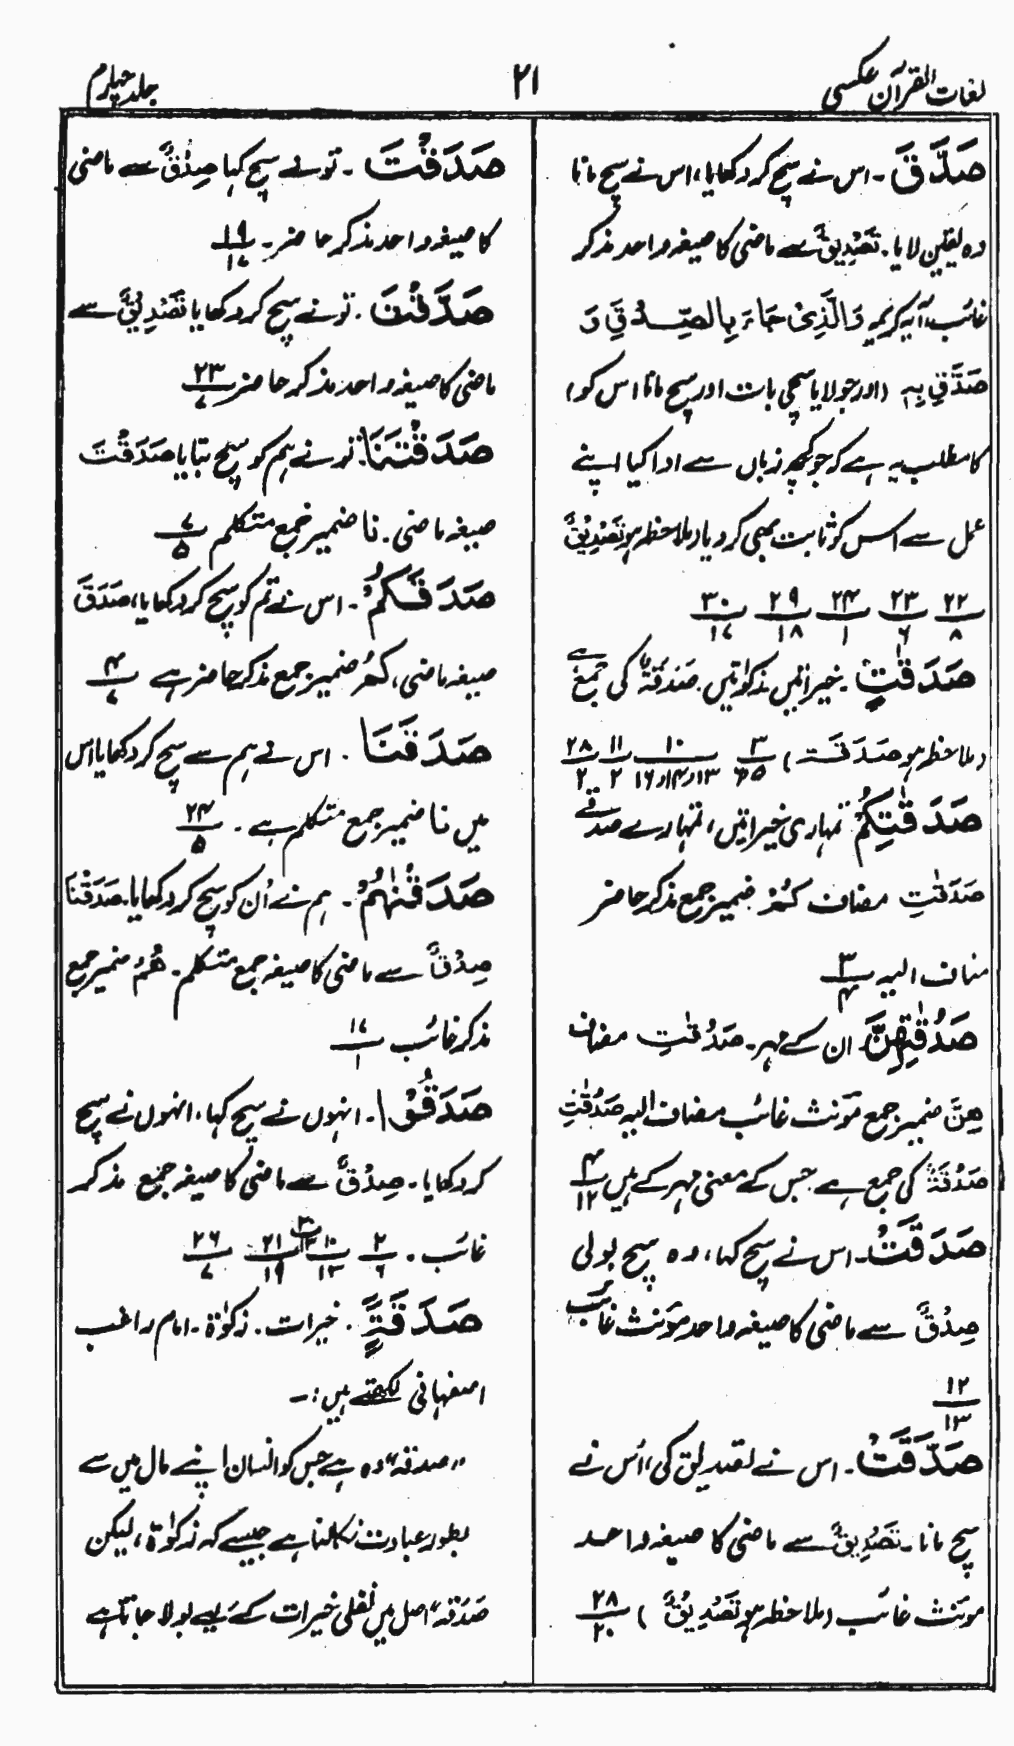 لغات القرآن عکسی
۲۱
جلد چہارم
صَدَّقَ ۔ اس نے سچ کر دکھایا، اس نے سچ مانا
وہ یقین لایا۔ تَصْدِیْقٌ سے ماضی کا صیغہ واحد مذکر
غائب، آیہ کریمہ وَالَّذِیْ جَاءَ بِالصِّدْقِ وَ
صَدَّقَ بِہٖ (اور جو لایا سچی بات اور سچ مانا اس کو)
کا مطلب یہ ہے کہ جو کچھ زباں سے ادا کیا اپنے
عمل سے اس کو ثابت بھی کر دیا (ملاحظہ ہو تَصْدِیْقٌ
۲۲/۸ ۲۳/۶ ۲۴/۱ ۲۹/۱۸ ۳۰/۱۷
صَدَقٰتٍ ۔ خیراتیں زکوٰتیں۔ صَدَقَۃٌ کی جمع ہے
(ملاحظہ ہو صَدَقَۃ) ۳/۶۵ ۱۰/۱۳ر۱۴ر۱۶ ۱۱/۲ ۲۸/۲
صَدَقٰتِکُمْ تمہاری خیراتیں، تمہارے صدقے
صَدَقٰتِ مضاف کُمْ ضمیر جمع مذکر حاضر
مضاف الیہ ۳/۴
صَدُقٰتِہِنَّ ان کے مہر۔ صَدُقٰتِ مضاف
ھِنَّ ضمیر جمع مؤنث غائب مضاف الیہ صَدُقٰتِ
صَدُقَۃٌ کی جمع ہے جس کے معنی مہر کے ہیں ۴/۱۲
صَدَقَتْ ۔ اس نے سچ کہا، وہ سچ بولی
صِدْقٌ سے ماضی کا صیغہ واحد مؤنث غائب
۱۲/۱۳
صَدَّقَتْ ۔ اس نے تصدیق کی، اُس نے
سچ مانا ۔ تَصْدِیْقٌ سے ماضی کا صیغہ واحد
مؤنث غائب (ملاحظہ ہو تَصْدِیْقٌ) ۲۸/۲۰
صَدَقْتَ ۔ تو نے سچ کہا صِدْقٌ سے ماضی
کا صیغہ واحد مذکر حاضر۔ ۱۹/۱۷
صَدَّقْتَ ۔ تو نے سچ کر دکھایا تَصْدِیْقٌ سے
ماضی کا صیغہ واحد مذکر حاضر ۲۳/۷
صَدَقْتَنَا تو نے ہم کو سچ بتایا صَدَقْتَ
صیغہ ماضی۔ نا ضمیر جمع متکلم ۷/۵
صَدَقَکُمْ ۔ اس نے تم کو سچ کر دکھایا، صَدَقَ
صیغہ ماضی، کُمْ ضمیر جمع مذکر حاضر ہے ۴/۷
صَدَقَنَا ۔ اس نے ہم سے سچ کر دکھایا اس
میں نا ضمیر جمع متکلم ہے ۔ ۲۴/۵
صَدَقْنٰہُمْ ۔ ہم نے اُن کو سچ کر دکھایا۔ صَدَقْنَا
صِدْقٌ سے ماضی کا صیغہ جمع متکلم۔ ھُمْ ضمیر جمع
مذکر غائب ۱۷/۱
صَدَقُوْا ۔ انہوں نے سچ کہا، انہوں نے سچ
کر دکھایا۔ صِدْقٌ سے ماضی کا صیغہ جمع مذکر
غائب ۔ ۲/۶ ۱۰/۱۳ ۲۱/۱۹ ۲۶/۷
صَدَقَۃٍ ۔ خیرات۔ زکوٰۃ ۔ امام راغب
اصفہانی لکھتے ہیں :۔
"صدقہ" وہ ہے جس کو انسان اپنے مال میں سے
بطور عبادت نکالتا ہے جیسے کہ زکوٰۃ، لیکن
صَدَقَہ" اصل میں نفلی خیرات کے لیے بولا جاتا ہے